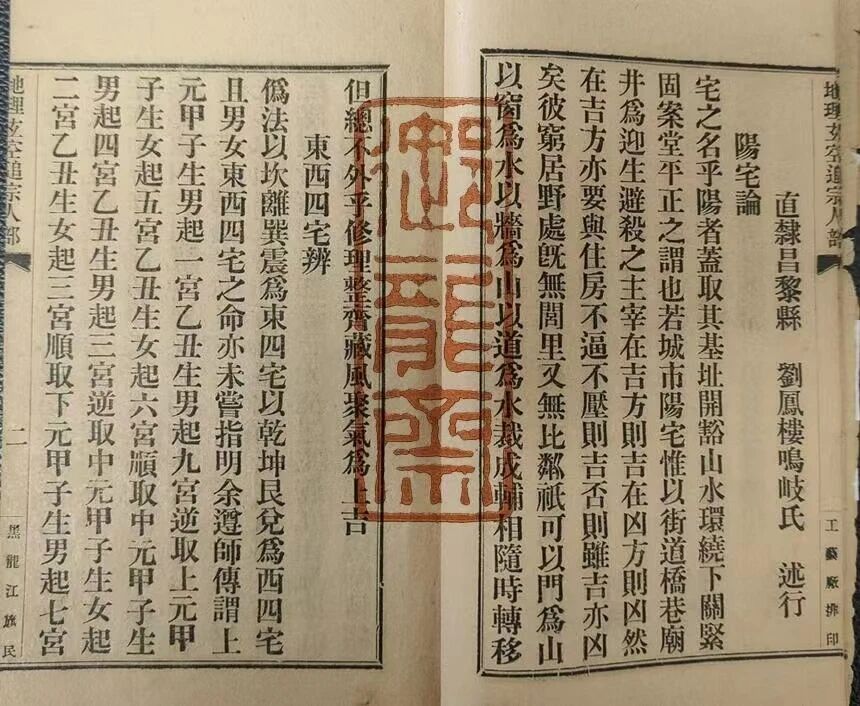 地理玄空追宗人部
工藝廠排印
直隸昌黎縣 劉鳳樓鳴岐氏 述行
陽宅論
宅之名乎陽者蓋取其基址開豁山水環繞下關緊
固案堂平正之謂也若城市陽宅惟以街道橋巷廟
井爲迎生避殺之主宰在吉方則吉在凶方則凶然
在吉方亦要與住房不逼不壓則吉否則雖吉亦凶
矣彼窮居野處旣無閭里又無比鄰祇可以門爲山
以窗爲水以牆爲山以道爲水裁成輔相隨時轉移
但總不外乎修理整齊藏風聚氣爲上吉
東西四宅辨
僞法以坎離巽震爲東四宅以乾坤艮兌爲西四宅
且男女東西四宅之命亦未嘗指明余遵師傳謂上
元甲子生男起一宮乙丑生男起九宮逆取上元甲
子生女起五宮乙丑生女起六宮順取中元甲子生
男起四宮乙丑生男起三宮逆取中元甲子生女起
二宮乙丑生女起三宮順取下元甲子生男起七宮
地理玄空追宗人部
二
黑龍江旅民